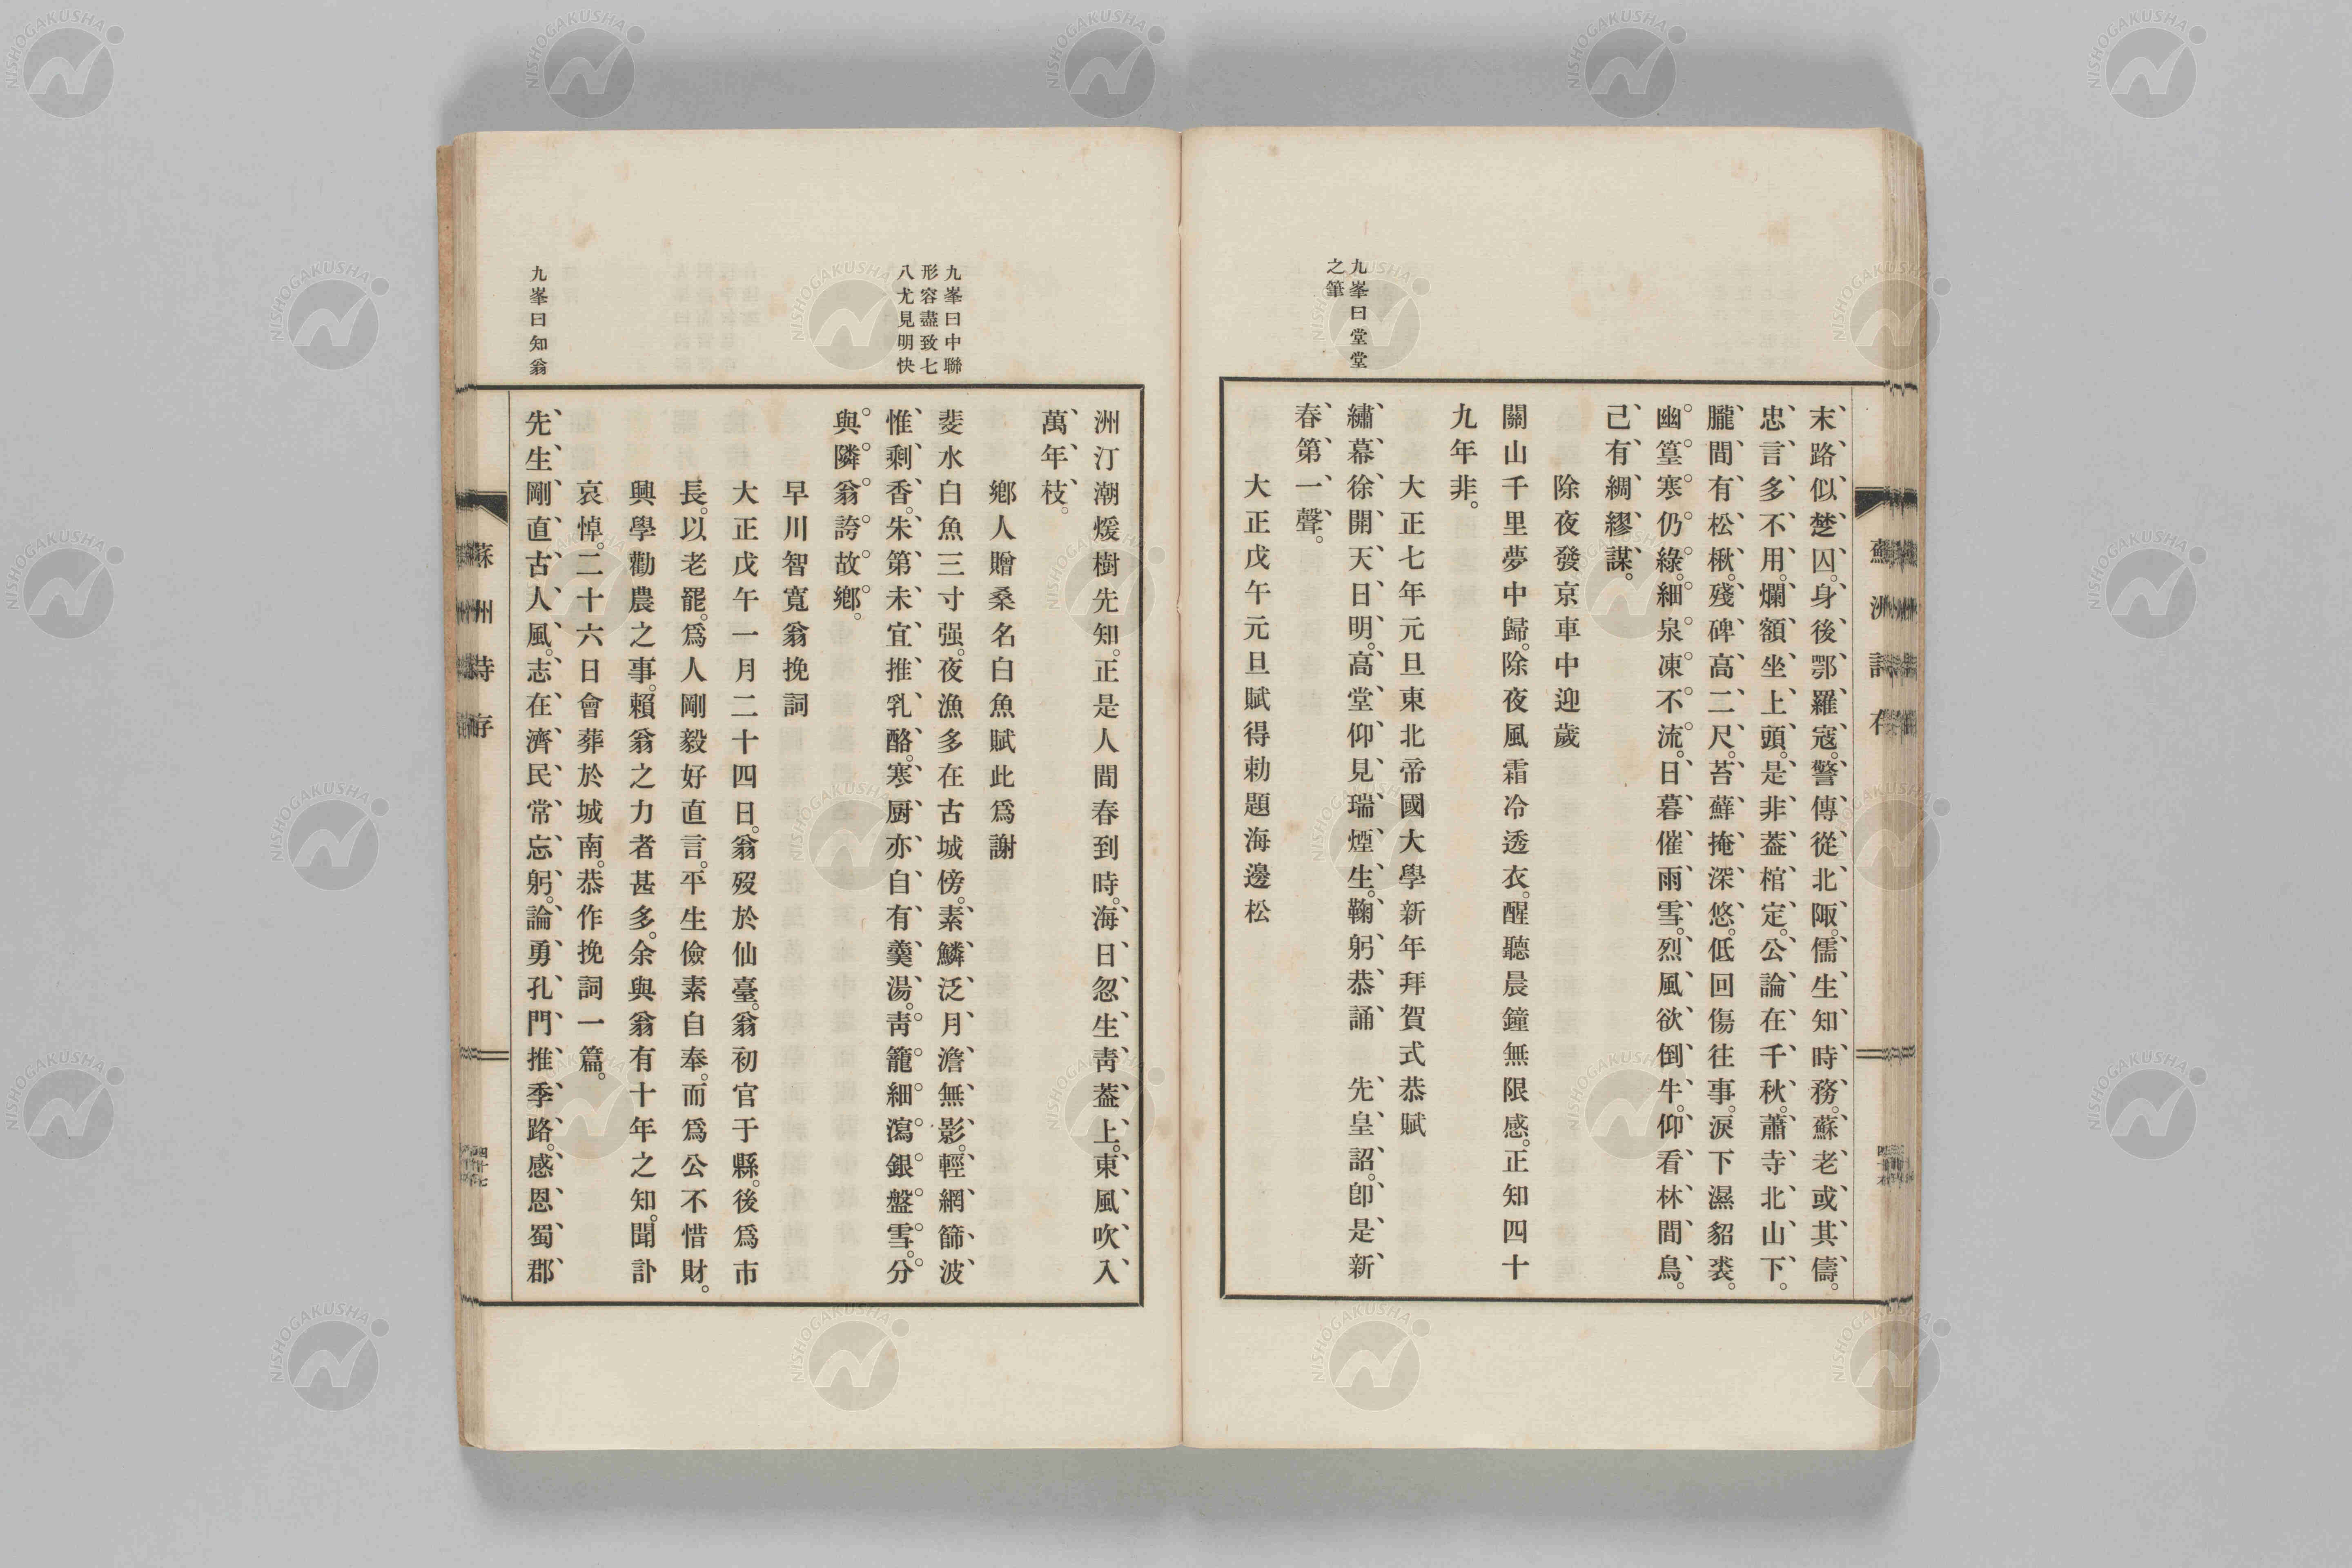 九峯曰堂堂
之筆
末路似楚囚。身後鄂羅寇。警傳從北陬。儒生知時務。蘇老或其儔。
忠言多不用。爛額坐上頭。是非蓋棺定。公論在千秋。蕭寺北山下。
朧間有松楸。殘碑高二尺。苔蘚掩深悠。低回傷往事。淚下濕貂裘。
幽篁寒仍綠。細泉凍不流。日暮催雨雪。烈風欲倒牛。仰看林間鳥。
己有綢繆謀。
除夜發京車中迎歲
關山千里夢中歸。除夜風霜冷透衣。醒聽晨鐘無限感。正知四十
九年非。
大正七年元旦東北帝國大學新年拜賀式恭賦
繡幕徐開天日明。高堂仰見瑞煙生。鞠躬恭誦　先皇詔。卽是新
春第一聲。
大正戊午元旦賦得勅題海邊松
九峯曰中聯
形容盡致七
八尤見明快
九峯曰知翁
洲汀潮煖樹先知。正是人間春到時。海日忽生靑蓋上。東風吹入
萬年枝。
鄕人贈桑名白魚賦此爲謝
斐水白魚三寸强。夜漁多在古城傍。素鱗泛月澹無影。輕網篩波
惟剩香。朱第未宜推乳酪。寒厨亦自有羹湯。靑籠細瀉銀盤雪。分
與隣翁誇故鄕。
早川智寬翁挽詞
大正戊午一月二十四日。翁歿於仙臺。翁初官于縣。後爲市
長。以老罷。爲人剛毅好直言。平生儉素自奉。而爲公不惜財。
興學勸農之事。賴翁之力者甚多。余與翁有十年之知。聞訃
哀悼。二十六日會葬於城南。恭作挽詞一篇。
先生剛直古人風。志在濟民常忘躬。論勇孔門推季路。感恩蜀郡